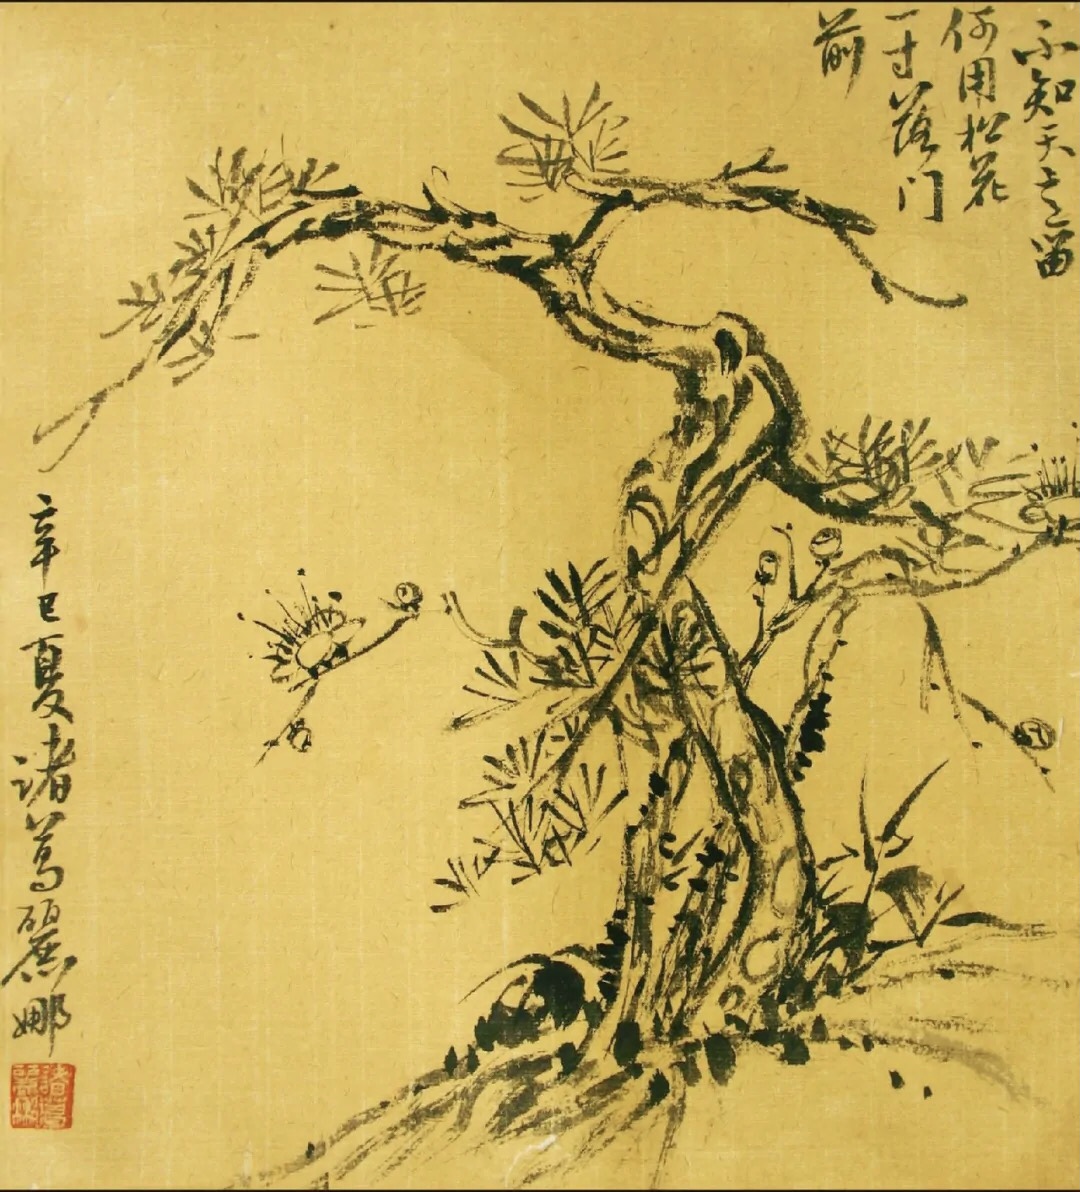 不知天留
何用松花
一寸落门
前
辛巳夏诸葛麗娜